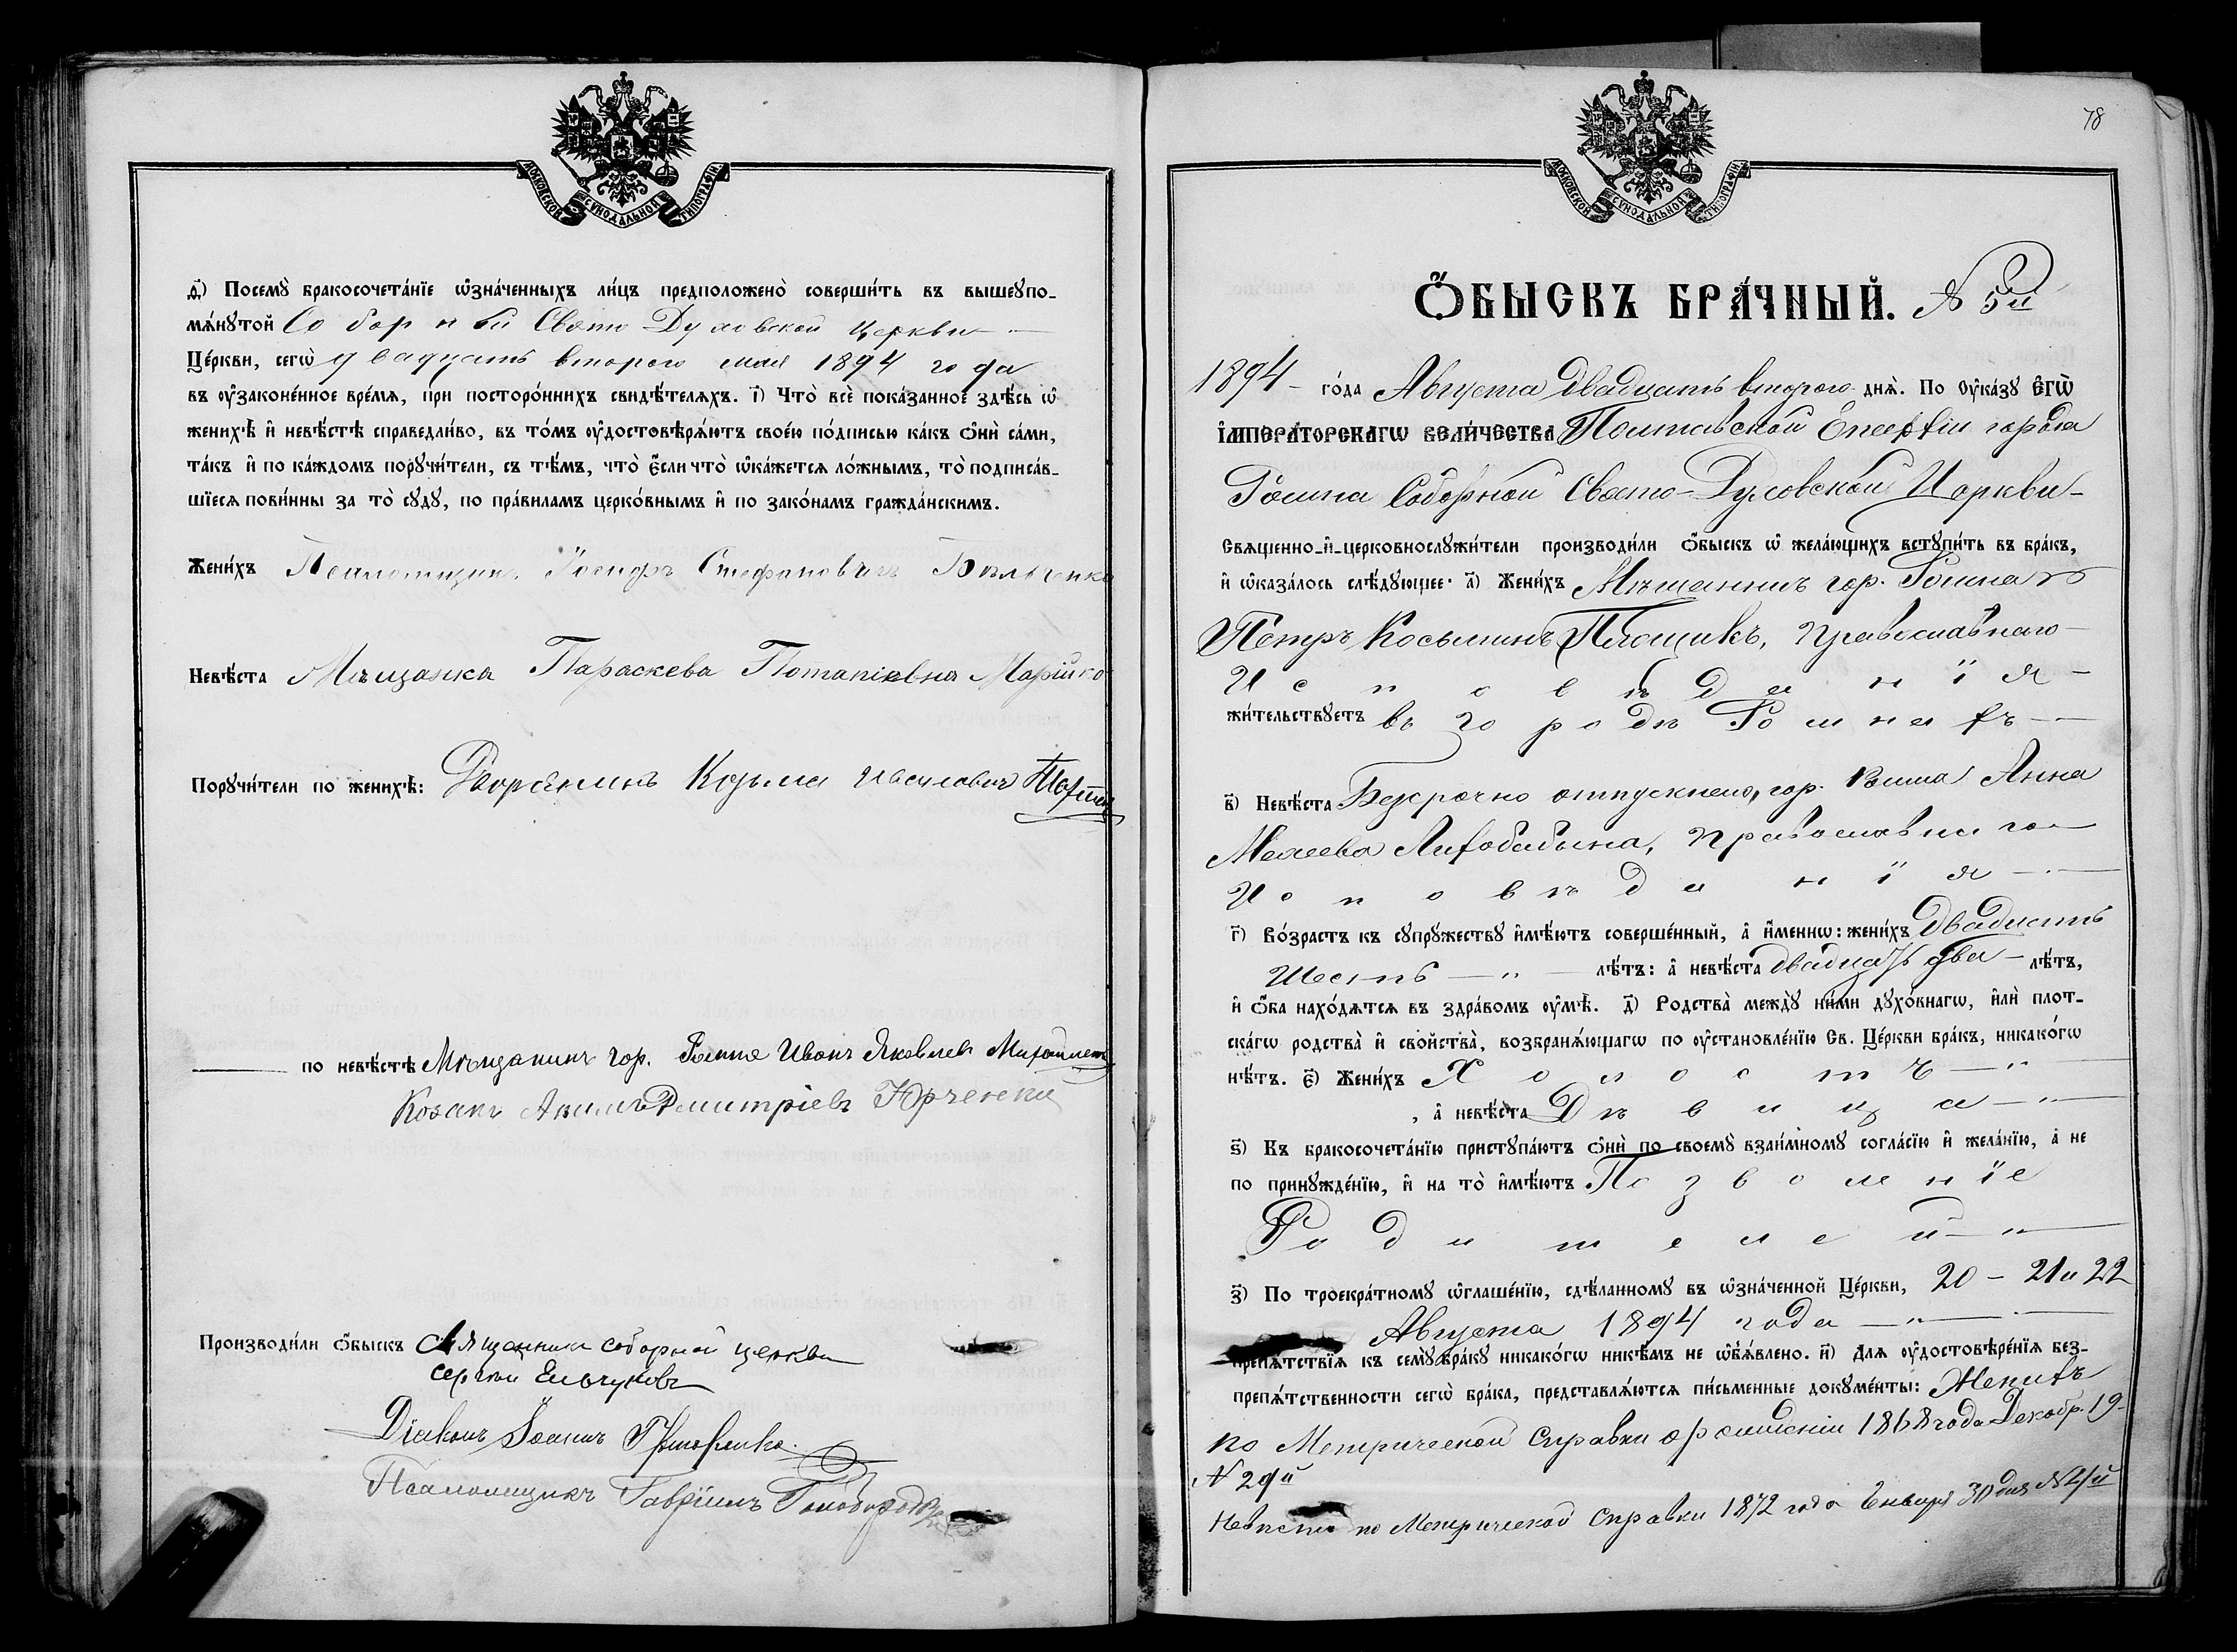 МОСКОВСКОЙ СѴНОДАЛЬНОЙ ТИПОГРАФІИ
ѳ҃) Посемꙋ̀ бракосочета́нїе ѡ҆зна́ченныхъ ли́цъ предположено̀ соверши́ть въ вышеꙋпо-
мѧ́нꙋтой Соборной Свято-Духовской церкви
Це́ркви, сегѡ̀ двадцать второго мая 1894 года
въ ᲂу҆законе́нное вре́мѧ, при посторо́ннихъ свидѣ́телѧхъ. і҃) Что̀ всѐ пока́занное здѣ́сь ѡ҆
женихѣ̀ и҆ невѣ́стѣ справедли́во, въ то́мъ ᲂу҆достовѣрѧ́ютъ свое́ю по́дписью ка́къ ѻ҆нѝ са́ми,
та́къ и҆ по ка́ждомъ порꙋчи́тели, съ тѣ́мъ, что̀ є҆́сли что̀ ѡ҆ка́жетсѧ ло́жнымъ, то̀ подписа́в-
шїесѧ пови́нны за то̀ сꙋдꙋ̀, по пра́виламъ церко́внымъ и҆ по зако́намъ гражда́нскимъ.
Жени́хъ Псаломщикъ Іосифъ Стефановичъ Бѣльченко
Невѣ́ста Мѣщанка Параскева Потапіевна Марійко
Порꙋчи́тели по женихѣ̀: Дворянинъ Козьма
по невѣ́стѣ Мѣщанинъ гор. Ромна Иванъ Яковлевъ
Козакъ Акимъ Дмитріевъ Юрченко
Производи́ли ѻ҆́быскъ Священникъ соборной церкви
Сергій
Діаконъ Іоаннъ
Псаломщикъ Гавріилъ
78
МОСКОВСКОЙ СѴНОДАЛЬНОЙ ТИПОГРАФІИ
Ѻ҆́БЫСКЪ БРА́ЧНЫЙ. № 5й
1894 го́да Августа двадцать второго днѧ̀. По ᲂу҆ка́зꙋ Є҆ГѠ̀
І҆МПЕРА́ТОРСКАГѠ ВЕЛИ́ЧЕСТВА Полтавской Епархіи города
Ромна Соборной Свято-Духовской Церкви
Свѧще́нно-и҆-церковнослꙋжи́тели производи́ли ѻ҆́быскъ ѡ҆ жела́ющихъ встꙋпи́ть въ бра́къ,
и҆ ѡ҆каза́лось слѣ́дꙋющее: а҃) Жени́хъ Мѣщанинъ гор. Ромна
Петръ Косьминъ Плющикъ, Православнаго
Исповѣданія
жи́тельствꙋетъ въ городѣ Ромнахъ
в҃) Невѣ́ста гор. Анна
Моисеева Лихобабина, Православнаго
Исповѣданія
г҃) Во́зрастъ къ сꙋпрꙋ́жествꙋ и҆мѣ́ютъ соверше́нный, а҆ и҆́меннѡ: жени́хъ Двадцать
Шесть лѣ́тъ: а҆ невѣ́ста двадцать два лѣ́тъ,
и҆ ѻ҆́ба нахо́дѧтсѧ въ здра́вомъ ᲂу҆мѣ̀. д҃) Родства̀ междꙋ̀ ни́ми дꙋхо́внагѡ, и҆лѝ плот-
ска́гѡ родства̀ и҆ сво́йства̀, возбранѧ́ющагѡ по ᲂу҆становле́нїю Св. Це́ркви бра́къ, никако́гѡ
нѣ́тъ. є҃) Жени́хъ Холостъ
, а҆ невѣ́ста Дѣвица
ѕ҃) Къ бракосочета́нїю пристꙋпа́ютъ ѻ҆нѝ по своемꙋ̀ взаи́мномꙋ согла́сїю и҆ жела́нїю, а҆ не
по принꙋжде́нїю, и҆ на то̀ и҆мѣ́ютъ Позволеніе
Родителей
з҃) По троекра́тномꙋ ѡ҆глаше́нїю, сдѣ́ланномꙋ въ ѡ҆зна́ченной Це́ркви, 20 – 21 и 22
Августа 1894 года
препѧ́тствїѧ къ семꙋ̀ бра́кꙋ никако́гѡ никѣ́мъ не ѡ҆б̾ѧ́влено. и҃) Длѧ ᲂу҆достовѣре́нїѧ без-
препѧ́тственности сегѡ̀ бра́ка, представлѧ́ютсѧ пи́сьменные докꙋме́нты: Женихъ
по Метрической справки о рожденіи 1868 года Декабр. 19
№ 29й
Невѣста по Метрической Справки 1872 года Января 30 дня № 4й